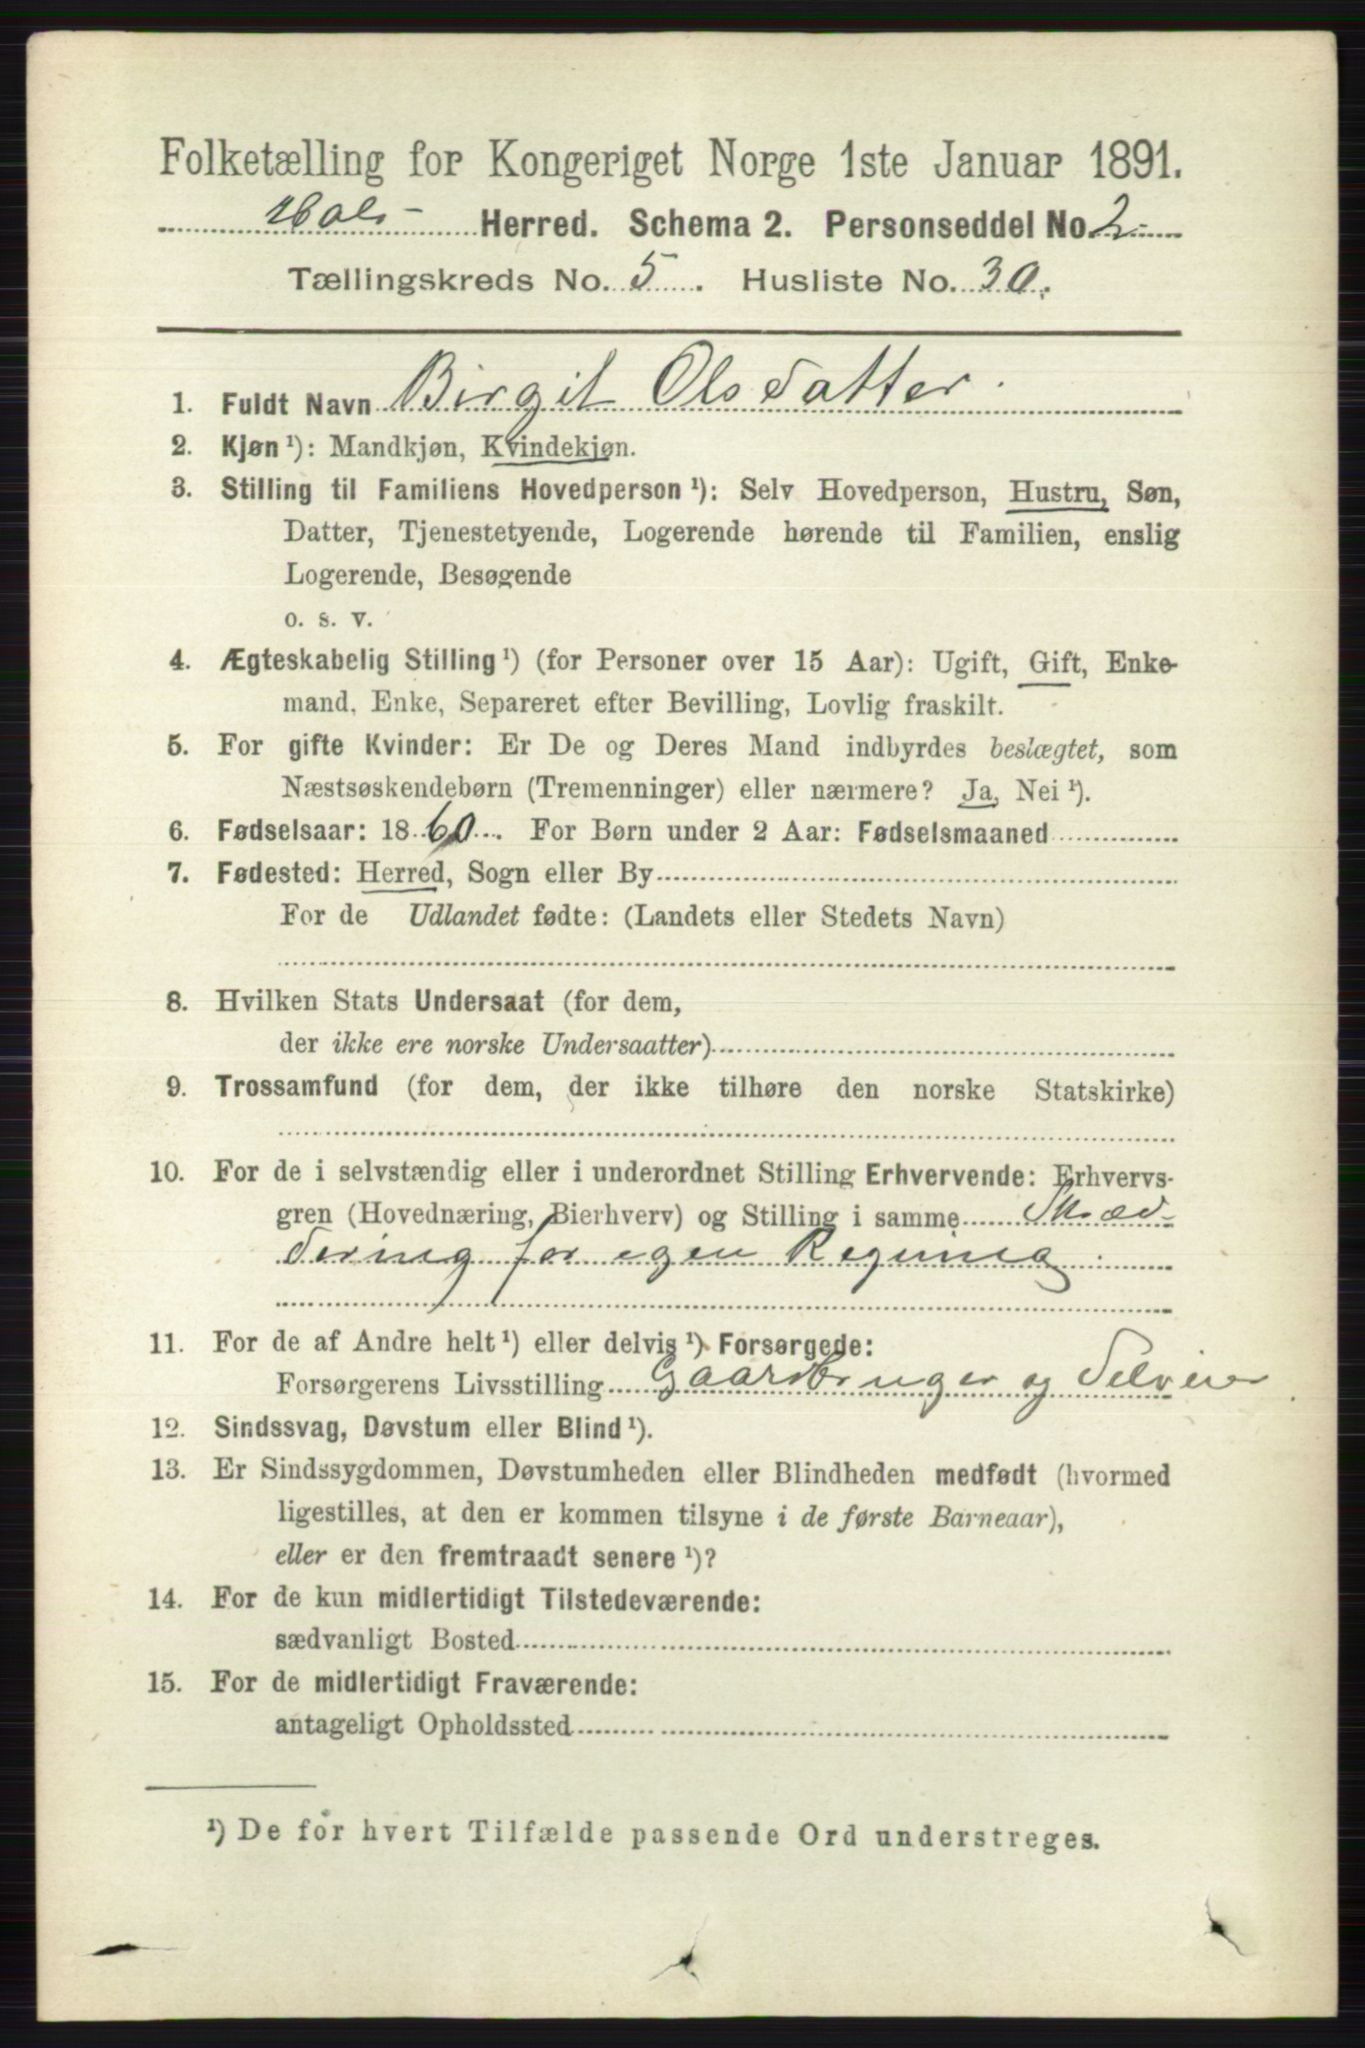 Folketælling for Kongeriget Norge 1ste Januar 1891.
Hols Herred. Schema 2. Personseddel No. 2
Tællingskreds No. 5. Husliste No. 30.
1. Fuldt Navn Birgit Olsdatter.
2. Kjøn¹): Mandkjøn, Kvindekjøn.
3. Stilling til Familiens Hovedperson¹): Selv Hovedperson, Hustru, Søn,
Datter, Tjenestetyende, Logerende hørende til Familien, enslig
Logerende, Besøgende
o. s. v.
4. Ægteskabelig Stilling¹) (for Personer over 15 Aar): Ugift, Gift, Enke-
mand, Enke, Separeret efter Bevilling, Lovlig fraskilt.
5. For gifte Kvinder: Er De og Deres Mand indbyrdes beslægtet, som
Næstsøskendebørn (Tremenninger) eller nærmere? Ja, Nei¹).
6. Fødselsaar: 1860. For Børn under 2 Aar: Fødselsmaaned
7. Fødested: Herred, Sogn eller By
For de Udlandet fødte: (Landets eller Stedets Navn)
8. Hvilken Stats Undersaat (for dem,
der ikke ere norske Undersaatter)
9. Trossamfund (for dem, der ikke tilhøre den norske Statskirke)
10. For de i selvstændig eller i underordnet Stilling Erhvervende: Erhvervs-
gren (Hovednæring, Bierhverv) og Stilling i samme Skræd-
dering for egen Regning.
11. For de af Andre helt¹) eller delvis¹) Forsørgede:
Forsørgerens Livsstilling Gaardbruger og Selveier
12. Sindssvag, Døvstum eller Blind¹).
13. Er Sindssygdommen, Døvstumheden eller Blindheden medfødt (hvormed
ligestilles, at den er kommen tilsyne i de første Barneaar),
eller er den fremtraadt senere¹)?
14. For de kun midlertidigt Tilstedeværende:
sædvanligt Bosted
15. For de midlertidigt Fraværende:
antageligt Opholdssted
¹) De for hvert Tilfælde passende Ord understreges.